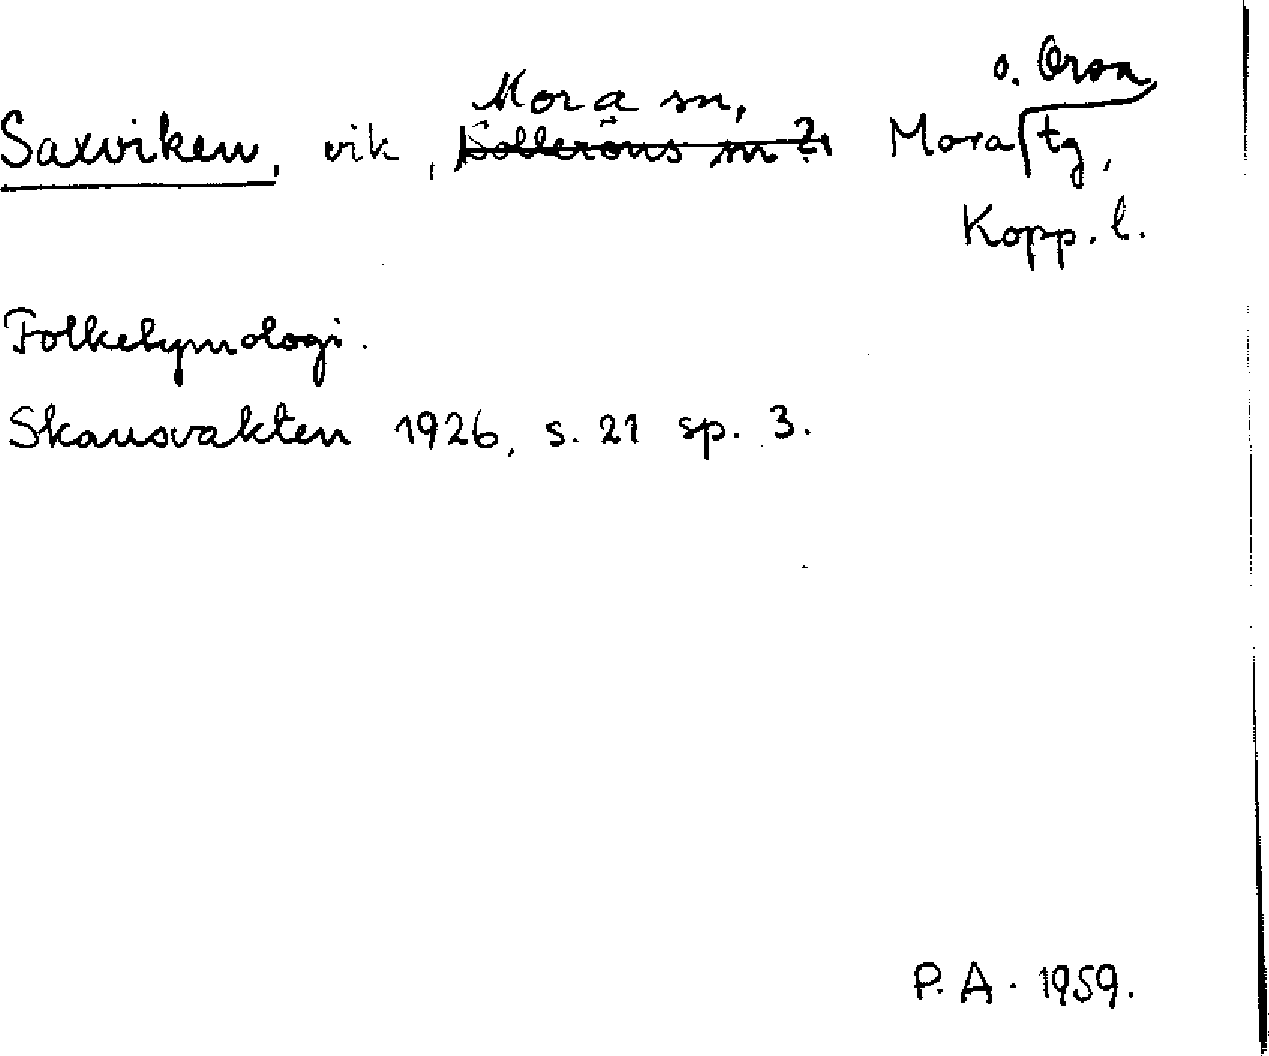 o. Orsa
Mora sn,
Saxviken, vik, Solleröns sn?, Mora tg,
Kopp. l.
Folketymologi.
Skansvakten 1926, s. 21 sp. 3.
P. A. 1959.